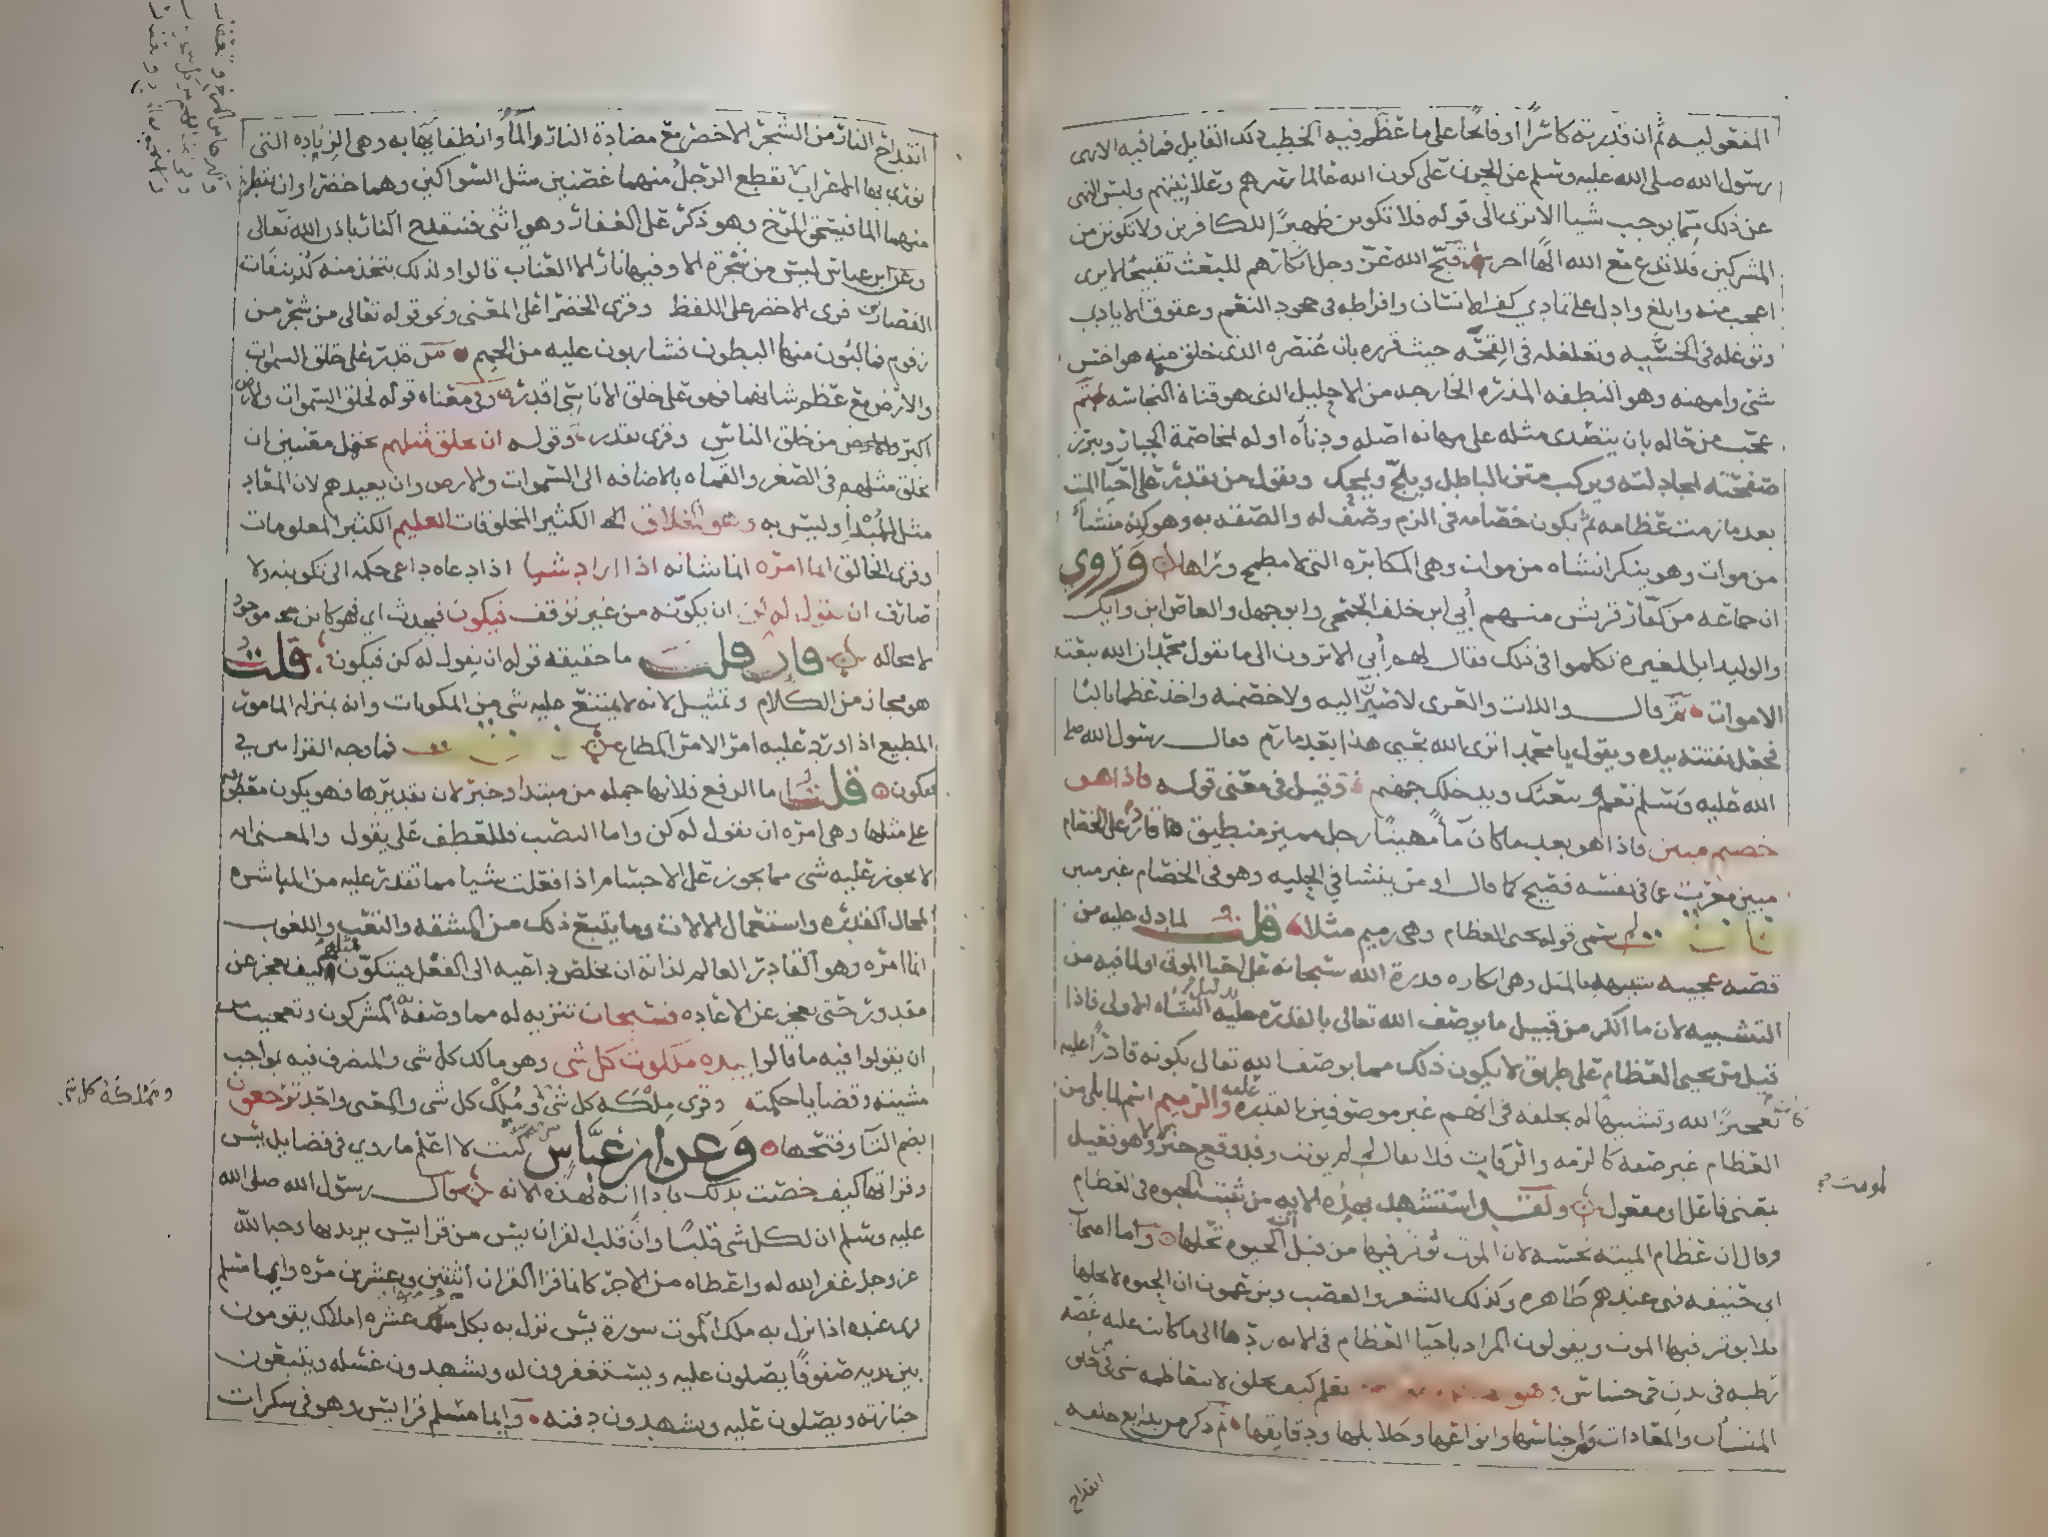 المفعولية ثم ان قدرته كاسرًا او فاتحًا على ما عظم فيه الخطب ذلك القايل فما فيه الا نهى
رسول الله صلى الله عليه وسلم عن الحزن على كون الله عالما بسرهم وعلانيتهم وليس النهي
عن ذلك مما يوجب شيا الا ترى الى قوله فلا تكونن ظهيرًا للكافرين ولا تكونن من
المشركين فلا تدع مع الله الهًا اخر قبّح الله عزّ وجل انكارهم للبعث تقبيحًا لا يرى
اعجب منه وابلغ وادل على تمادي كفر الانسان وافراطه في جحود النعم وعقوق الايادي
وتوغله في الخسّه وتغلغله في القحّه حيث قرره بان عنصره الذي خلق منه هو اخس
شي وامهنه وهو النطفه المذره الخارجه من الاحليل الذي هو قناة النجاسه ثم
عجب من حاله بان يتصدى مثله على مهانه اصله ودناه اوله لمخاصمة الجبار ويبرز
صفحته لمجادلته ويركب متن الباطل ويلجّ ويمحك ويقول من يقدر على احيا الميت
بعد ما رمت عظامه ثم يكون خصامه في الزم وصف له والصقه به وهو كونه منشأ
من موات وهو ينكر انشاه من موات وهي المكابره التي لا مطمح وراها وروي
ان جماعه من كفار قريش منهم أبي ابن خلف الجمحي وابو جهل والعاص ابن وايل
والوليد ابن المغيره تكلموا في ذلك فقال لهم أبي الا ترون الى ما يقول محمد ان الله يبعث
الاموات ثم قال واللات والعزى لاصيرن اليه ولاخصمنه واخذ عظما باليا
فجعل يفتته بيده ويقول يا محمد اترى الله يحيي هذا بعد ما رم فقال رسول الله صلى
الله عليه وسلم نعم ويبعثك ويدخلك جهنم وقيل في معنى قوله فاذا هو
خصيم مبين فاذا هو بعد ما كان مآً مهينًا رجل مميز منطيق قادر على الخصام
مبين معرب عما في نفسه فصيح كما قال او من ينشا في الحليه وهو في الخصام غير مبين
لم سمى قوله من يحيى العظام وهي رميم مثلا قلت لما دل عليه من
قصه عجيبه شبيهه بالمثل وهي انكاره قدرة الله سبحانه على احيا الموتى او لما فيه من
التشبيه لان ما انكر من قبيل ما يوصف الله تعالى بالقدره عليه بدليل النشاه الاولى فاذا
قيل من يحيي العظام على طريق لا يكون ذلك مما يوصف الله تعالى بكونه قادرًا عليه
كان تعجيزًا لله وتشبيهًا له بخلقه في انهم غير موصوفين بالقدره عليه والرميم اسم لما بلى من
العظام غير صفه كالرمه والرفات فلا يقال لم لم يونث وقد وقع خبرًا ولا هو فعيل
بمعنى فاعل او مفعول ولقد استشهد بهذه الايه من يثبت الحيوه في العظام
وقال ان عظام الميته نجسه لان الموت يوثر فيها من قبل ان الحيوه تحلها واما اصحاب
ابي حنيفه فهي عندهم طاهره وكذلك الشعر والعصب ويزعمون ان الحيوه لا تحلها
فلا يوثر فيها الموت ويقولون المراد باحيا العظام في الايه ردها الى ما كانت عليه غضه
رطبه في بدن حي حساس وهو يعلم كيف يخلق لا يتعاظمه شي من خلق
المنشآت والمعادات واجناسها وانواعها وجلايلها ودقايقها ثم ذكر من بدايع خلقه
انقداح
انقداح النار من الشجر الاخضر مع مضادة النار والمآ وانطفايها به وهي الزناده التي
تورى بها الاعراب يقطع الرجل منهما غصنين مثل السواكين وهما خضراوان يقطر
منهما الما فيسحق المرخ وهو ذكر على العفار وهو انثى فتنقدح النار باذن الله تعالى
وعن ابن عباس ليس من شجره الا وفيها نار الا العناب قالوا ولذلك يتخذ منه كذينقات
القصارين قرى الاخضر على اللفظ وقرى الخضرا على المعنى ونحو قوله تعالى من شجر من
زقوم فمالئون منها البطون فشاربون عليه من الحميم من قدر على خلق السموات
والارض مع عظم شانهما فهو على خلق الاناسي اقدر وفي معناه قوله لخلق السموات والارض
اكبر من خلق الناس وقرى يقدر وقوله ان يخلق مثلهم يحتمل معنيين ان
يخلق مثلهم في الصغر والقماه بالاضافه الى السموات والارض وان يعيدهم لان المعاد
مثل المبدا وليس به وهو الخلاق الكثير المخلوقات العليم الكثير المعلومات
وقرى الخالق انما امره انما شانه اذا اراد شيا اذا دعاه داعي حكمه الى تكوينه ولا
صارف ان يقول له كن ان يكونه من غير توقف فيكون فيحدث اي فهو كاين موجود
لا محاله فان قلت ما حقيقه قوله ان يقول له كن فيكون قلت
هو مجاز من الكلام وتمثيل لانه لا يمتنع عليه شي من المكونات وانه بمنزله المامور
المطيع اذا ورد عليه امر الامر المطاع فما وجه القراتين في
فيكون قلت اما الرفع فلانها جمله من مبتدا وخبر لان تقديرها فهو يكون معطوفه
على مثلها وهي امره ان يقول له كن واما النصب فللعطف على يقول والمعنى انه
لا يجوز عليه شي مما يجوز على الاجسام اذا فعلت شيا مما تقدر عليه من المباشره
لمحال القدره واستعمال الالات وما يتبع ذلك من المشقه والتعب واللغوب
انما امره وهو القادر العالم لذاته ان يخلص داعيه الى الفعل فيتكون فمثله كيف يعجز عن
مقدور حتى يعجز عن الاعاده فسبحان تنزيه له مما وصفه به المشركون وتعجيب من
ان يقولوا فيه ما قالوا بيده ملكوت كل شي وهو مالك كل شي والمتصرف فيه بمواجب
مشيته وقضايا حكمته وقرى ملكة كل شي وملك كل شي والمعنى واحد ترجعون
ومملكة كل شي
بضم التآ وفتحها وعن ابن عباس كنت لا اعلم ما روي في فضايل يس
وقراتها كيف خصت بذلك فاذا انه لهذه الايه قال رسول الله صلى الله
عليه وسلم ان لكل شي قلبًا وان قلب القران يس من قرا يس يريد بها وجه الله
عز وجل غفر الله له واعطاه من الاجر كانما قرا القران اثنتين وعشرين مره وايما مسلم
قرى عنده اذا نزل به ملك الموت سورة يس نزل به بكل حرف منها عشره املاك يقومون
بين يديه صفوفًا يصلون عليه ويستغفرون له ويشهدون غسله ويتبعون
جنازته ويصلون عليه ويشهدون دفنه وايما مسلم قرا يس وهو في سكرات